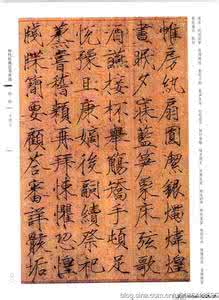 帷房紈扇圓潔銀燭煒煌
晝眠夕寐藍筍象床弦歌
酒讌接杯舉觴矯手頓足
悅豫且康嫡後嗣續祭祀
蒸嘗稽顙再拜悚懼恐惶
牋牒簡要顧答審詳骸垢